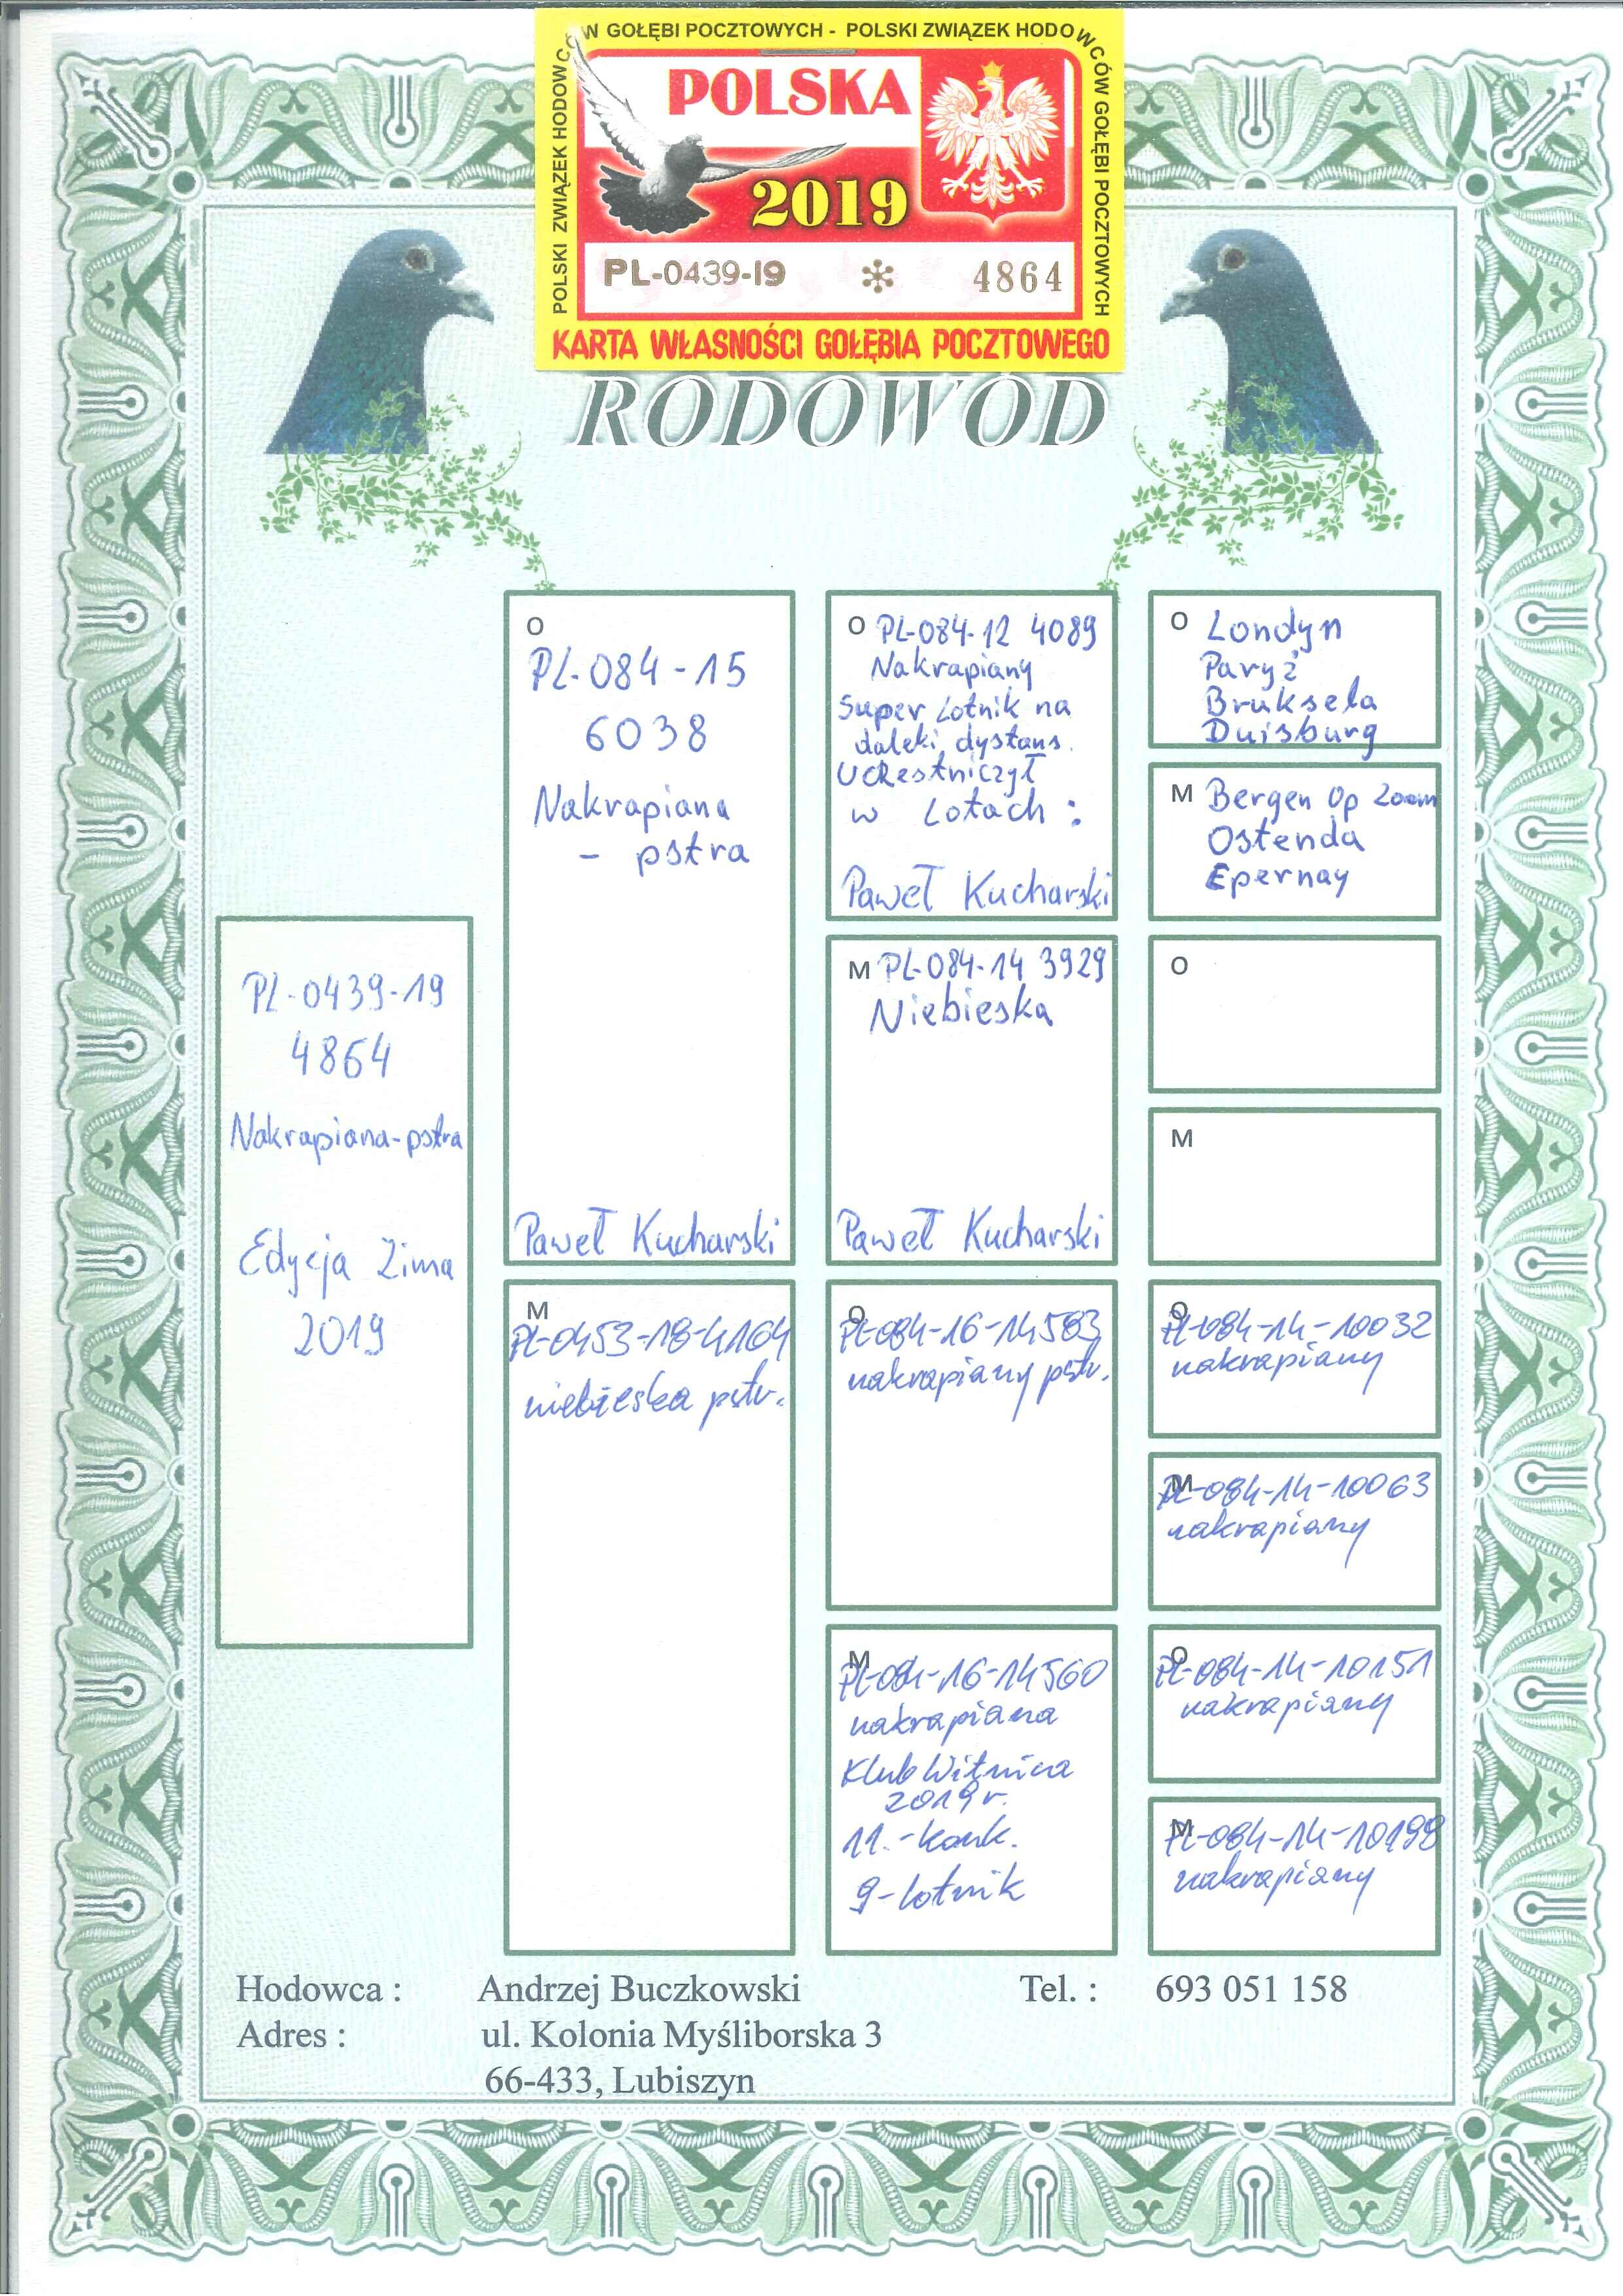 POLSKI ZWIĄZEK HODOWCÓW GOŁĘBI POCZTOWYCH - POLSKI ZWIĄZEK HODOWCÓW GOŁĘBI POCZTOWYCH
POLSKA
2019
PL-0439-19 * 4864
KARTA WŁASNOŚCI GOŁĘBIA POCZTOWEGO
RODOWÓD
PL-0439-19
4864
Nakrapiana-pstra
Edycja Zima
2019
O
PL-084-15
6038
Nakrapiana
- pstra
Paweł Kucharski
M
PL-0453-18-4164
niebieska pstr.
O PL-084-12 4089
Nakrapiany
Super Lotnik na
daleki dystans.
Uczestniczył
w Lotach :
Paweł Kucharski
M PL-084-14 3929
Niebieska
Paweł Kucharski
O
PL-084-16-14583
nakrapiany pstr.
M
PL-084-16-14560
nakrapiana
Klub Witnica
2019 r.
11.-konk.
9-lotnik
O Londyn
Paryż
Bruksela
Duisburg
M Bergen Op Zoom
Ostenda
Epernay
O
M
O
PL-084-14-10032
nakrapiany
M
PL-084-14-10063
nakrapiany
O
PL-084-14-10151
nakrapiany
M
PL-084-14-10198
nakrapiany
Hodowca : Andrzej Buczkowski Tel. : 693 051 158
Adres : ul. Kolonia Myśliborska 3
66-433, Lubiszyn